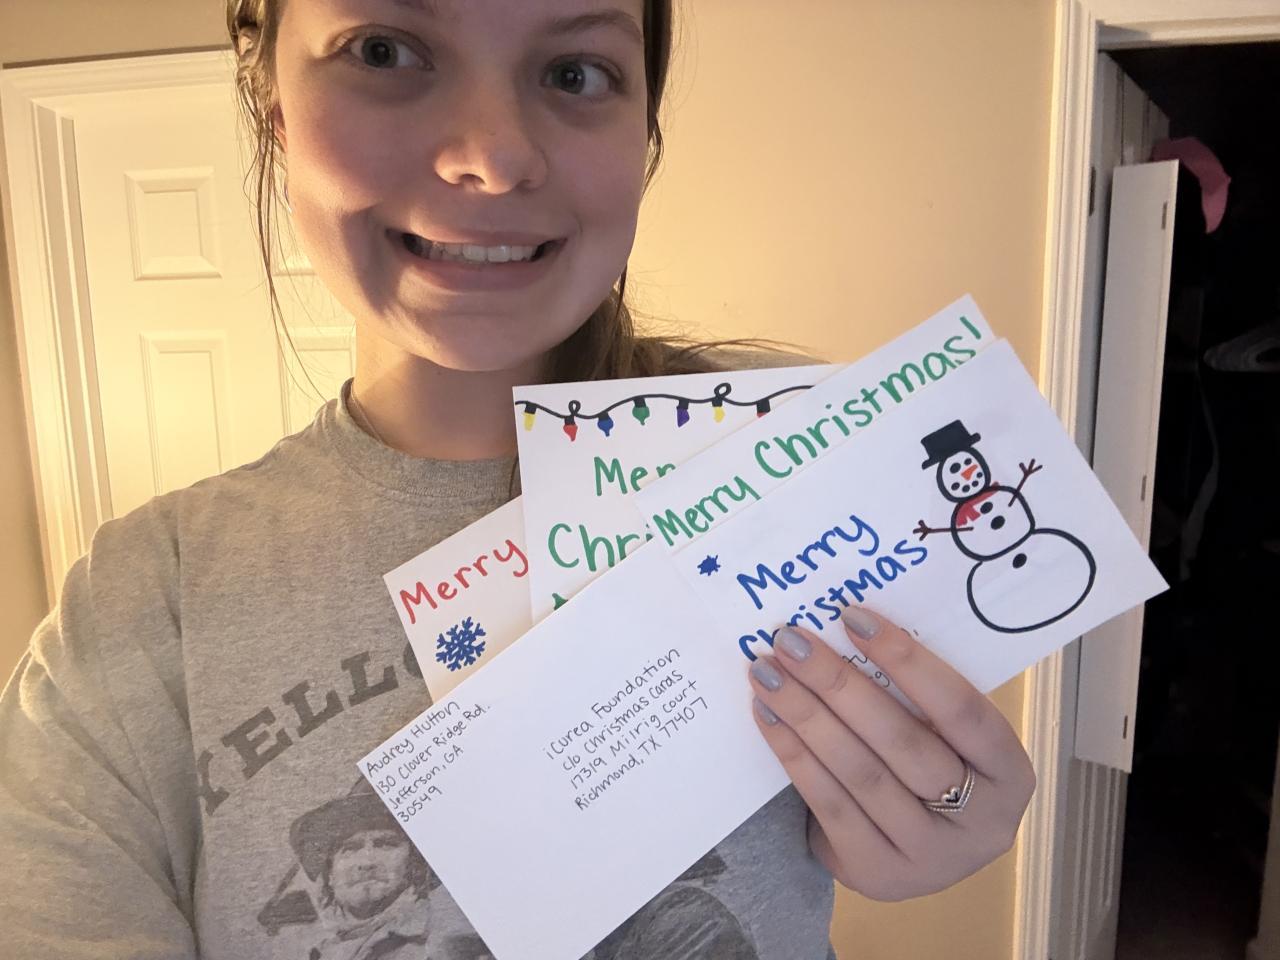 Merry
Mer
Chri
Merry Christmas!
Merry
Christmas
Audrey Hutton
130 Clover Ridge Rd.
Jefferson, GA
30549
icurea Foundation
c/o Christmas Cards
17319 Milrig Court
Richmond, TX 77407
YELLO